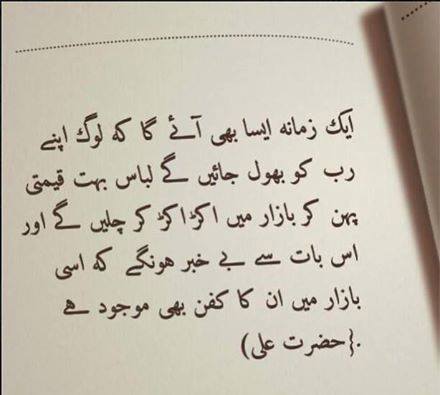 ایک زمانہ ایسا بھی آئے گا کہ لوگ اپنے
رب کو بھول جائیں گے لباس بہت قیمتی
پہن کر بازار میں اکڑ اکڑ کر چلیں گے اور
اس بات سے بے خبر ہونگے کہ اسی
بازار میں ان کا کفن بھی موجود ہے
.{حضرت علی)